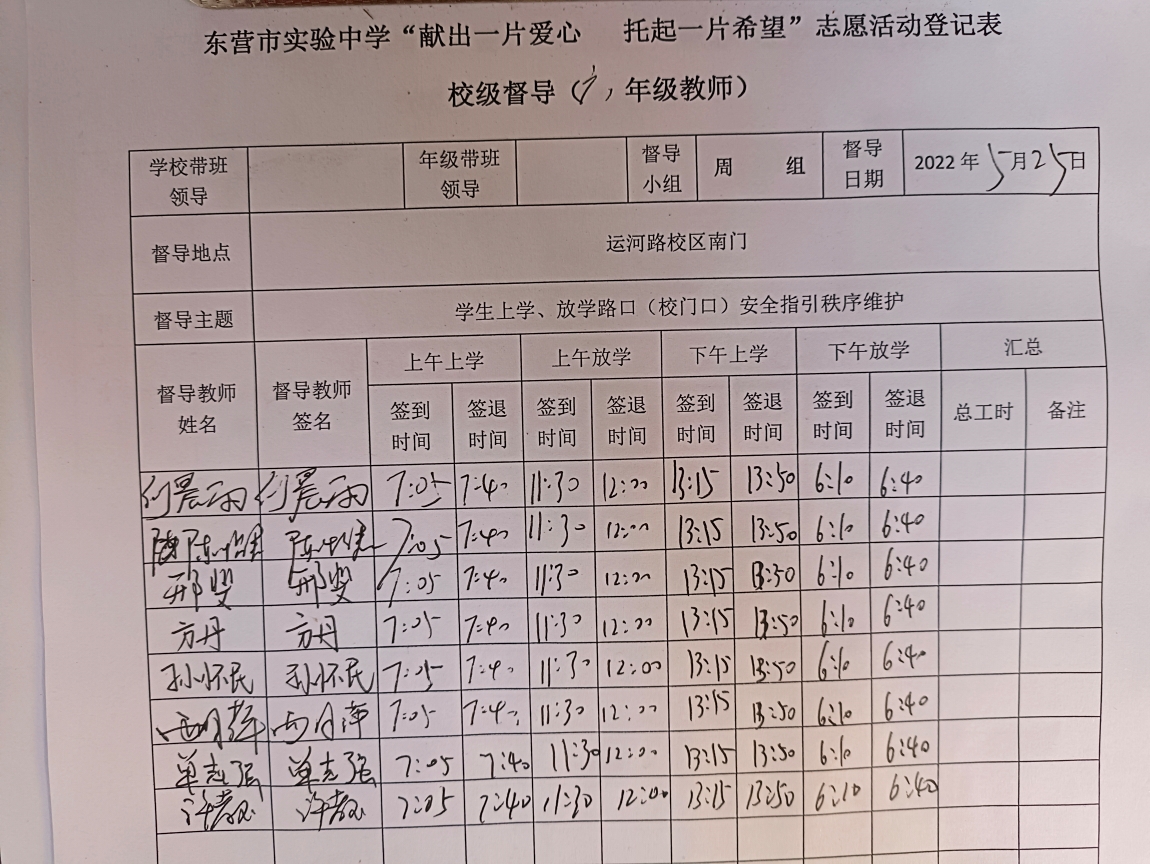 东营市实验中学“献出一片爱心 托起一片希望”志愿活动登记表
校级督导（ , 年级教师）
学校带班领导 年级带班领导 督导小组 周 组 督导日期 2022年5月25日
督导地点 运河路校区南门
督导主题 学生上学、放学路口（校门口）安全指引秩序维护
督导教师姓名 督导教师签名 上午上学 上午放学 下午上学 下午放学 汇总
签到时间 签退时间 签到时间 签退时间 签到时间 签退时间 签到时间 签退时间 总工时 备注
刘晨雨 刘晨雨 7:05 7:40 11:30 12:00 13:15 13:50 6:10 6:40
7:05 7:40 11:30 12:00 13:15 13:50 6:10 6:40
邢斐 邢斐 7:05 7:40 11:30 12:00 13:15 13:50 6:10 6:40
方丹 方丹 7:05 7:40 11:30 12:00 13:15 13:50 6:10 6:40
孙怀民 孙怀民 7:05 7:40 11:30 12:00 13:15 13:50 6:10 6:40
7:05 7:40 11:30 12:00 13:15 13:50 6:10 6:40
单志强 单志强 7:05 7:40 11:30 12:00 13:15 13:50 6:10 6:40
7:05 7:40 11:30 12:00 13:15 13:50 6:10 6:40